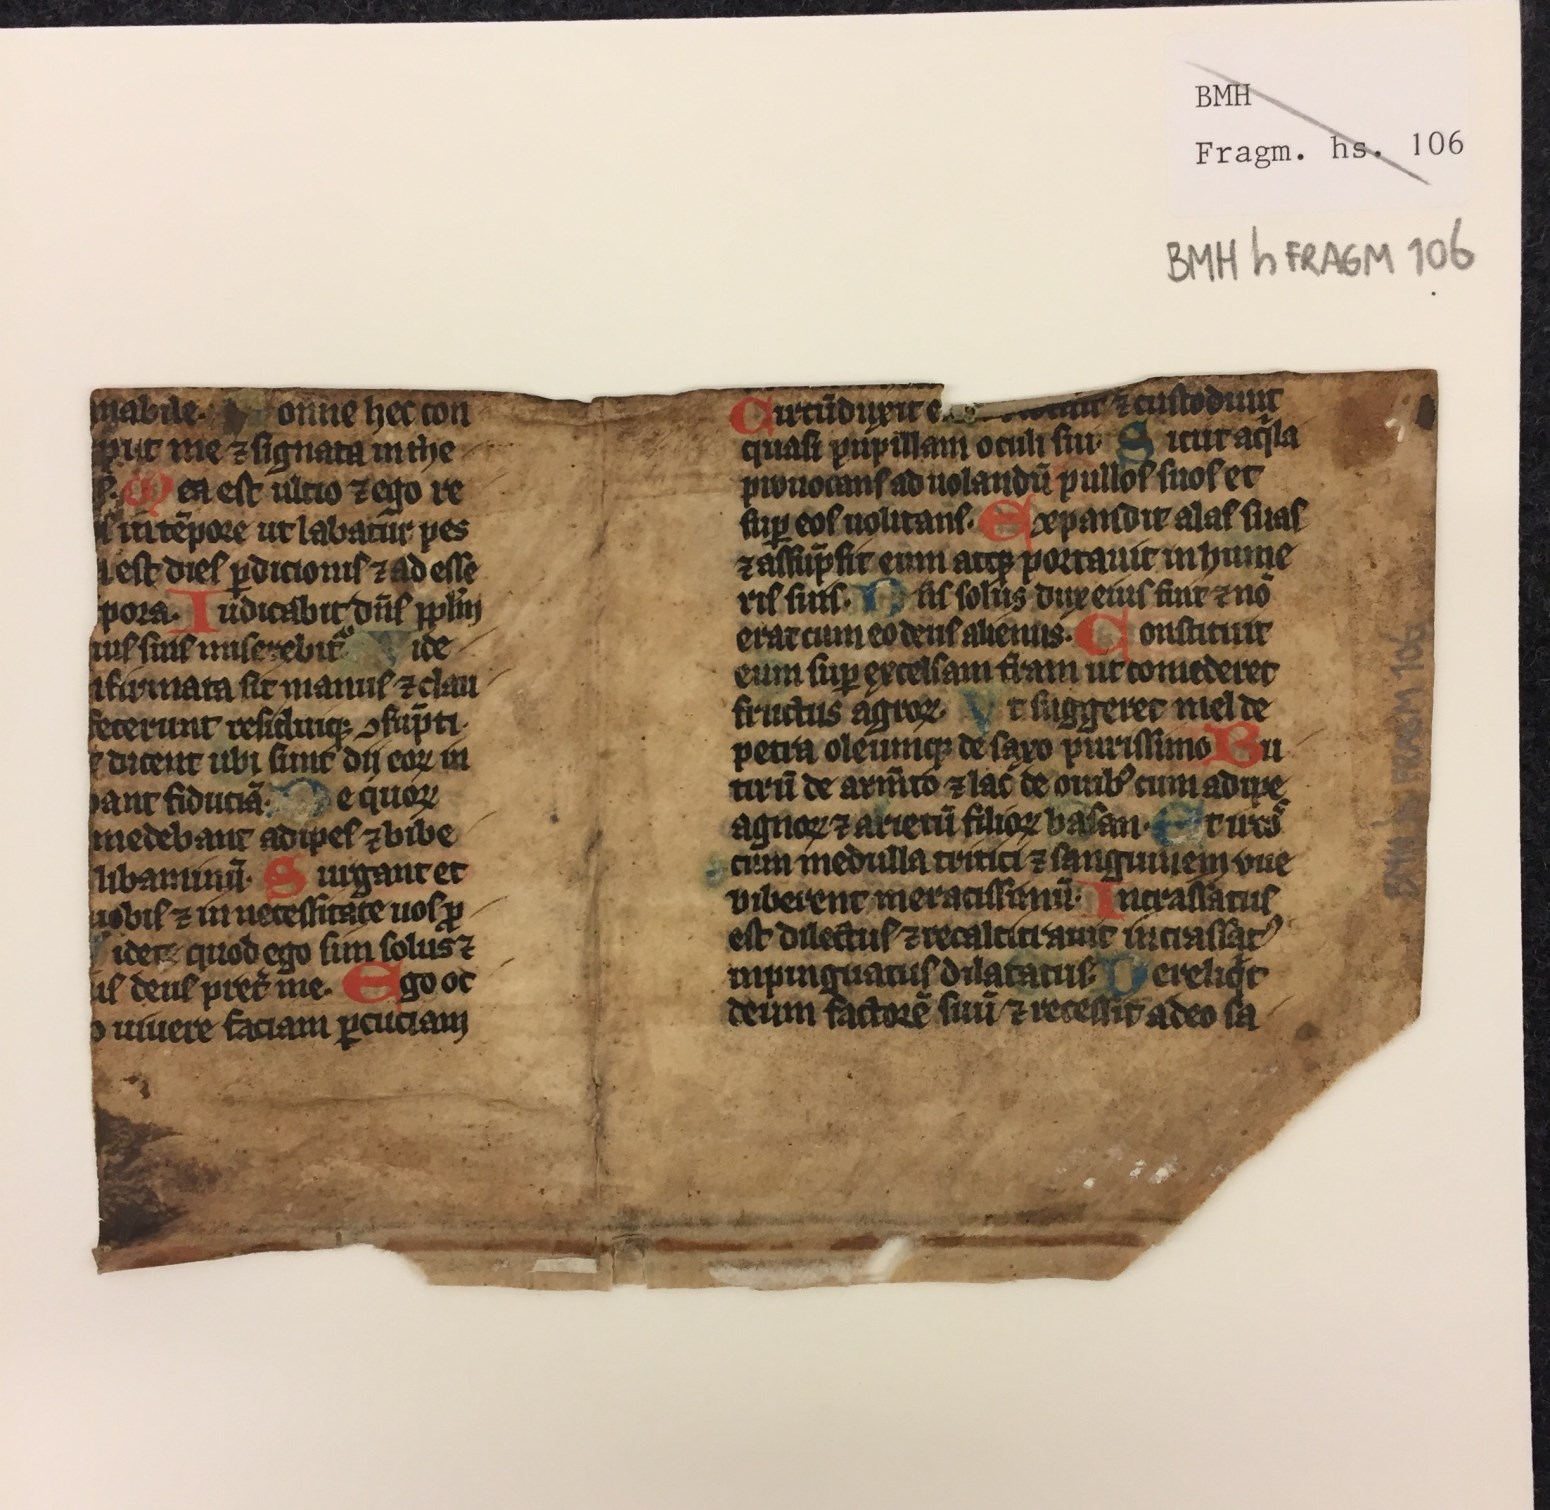 BMH
Fragm. hs. 106
BMH h FRAGM 106
nabile. onne hec con
put me ⁊ signata in the
Mea est ultio ⁊ ego re
in tēpore ut labatur pes
est dies ꝑdicionis ⁊ adesse
pora. Iudicabit dn̄s
uis suis miserebit᷑ ide
firmata sit manus ⁊ clau
fecerunt residuiqꝫ ↄsūpti.
dicent ubi sunt dii eoꝝ in
bant fiduciā. De quoꝝ
medebant adipes ⁊ bibe
libaminū. Surgant et
uobis ⁊ in necessitate uos ꝓ
idete quod ego sim solus ⁊
us deus pret̄ me. Ego oc
o uiuere faciam ꝑcuciam
Circūduxit e ⁊ custodiuit
quasi pupillam oculi sui. Sicut aq̇la
prouocans ad uolandū pullos suos et
suꝑ eos uolitans. Expandit alas suas
⁊ assūpsit eum atqꝫ portauit in hume
ris suis. Dn̄s solus dux eius fuit ⁊ nō
erat cum eo deus alienus. Constituit
eum suꝑ excelsam t̄ram ut comederet
fructus agroꝝ. Vt suggeret mel de
petra oleumqꝫ de saxo durissimo Bu
tirū de arm̄to ⁊ lac de ouibꝰ cum adipe
agnoꝝ ⁊ arietū filioꝝ basan. Et hircō
cum medulla tritici ⁊ sanguinem vue
biberent meracissimū. Incrassatus
est dilectus ⁊ recalcitrauit incrassatꝰ
inpinguatus dilatatus. Dereliq̇t
deum factorē suū ⁊ recessit a deo sa
BMH h FRAGM 106